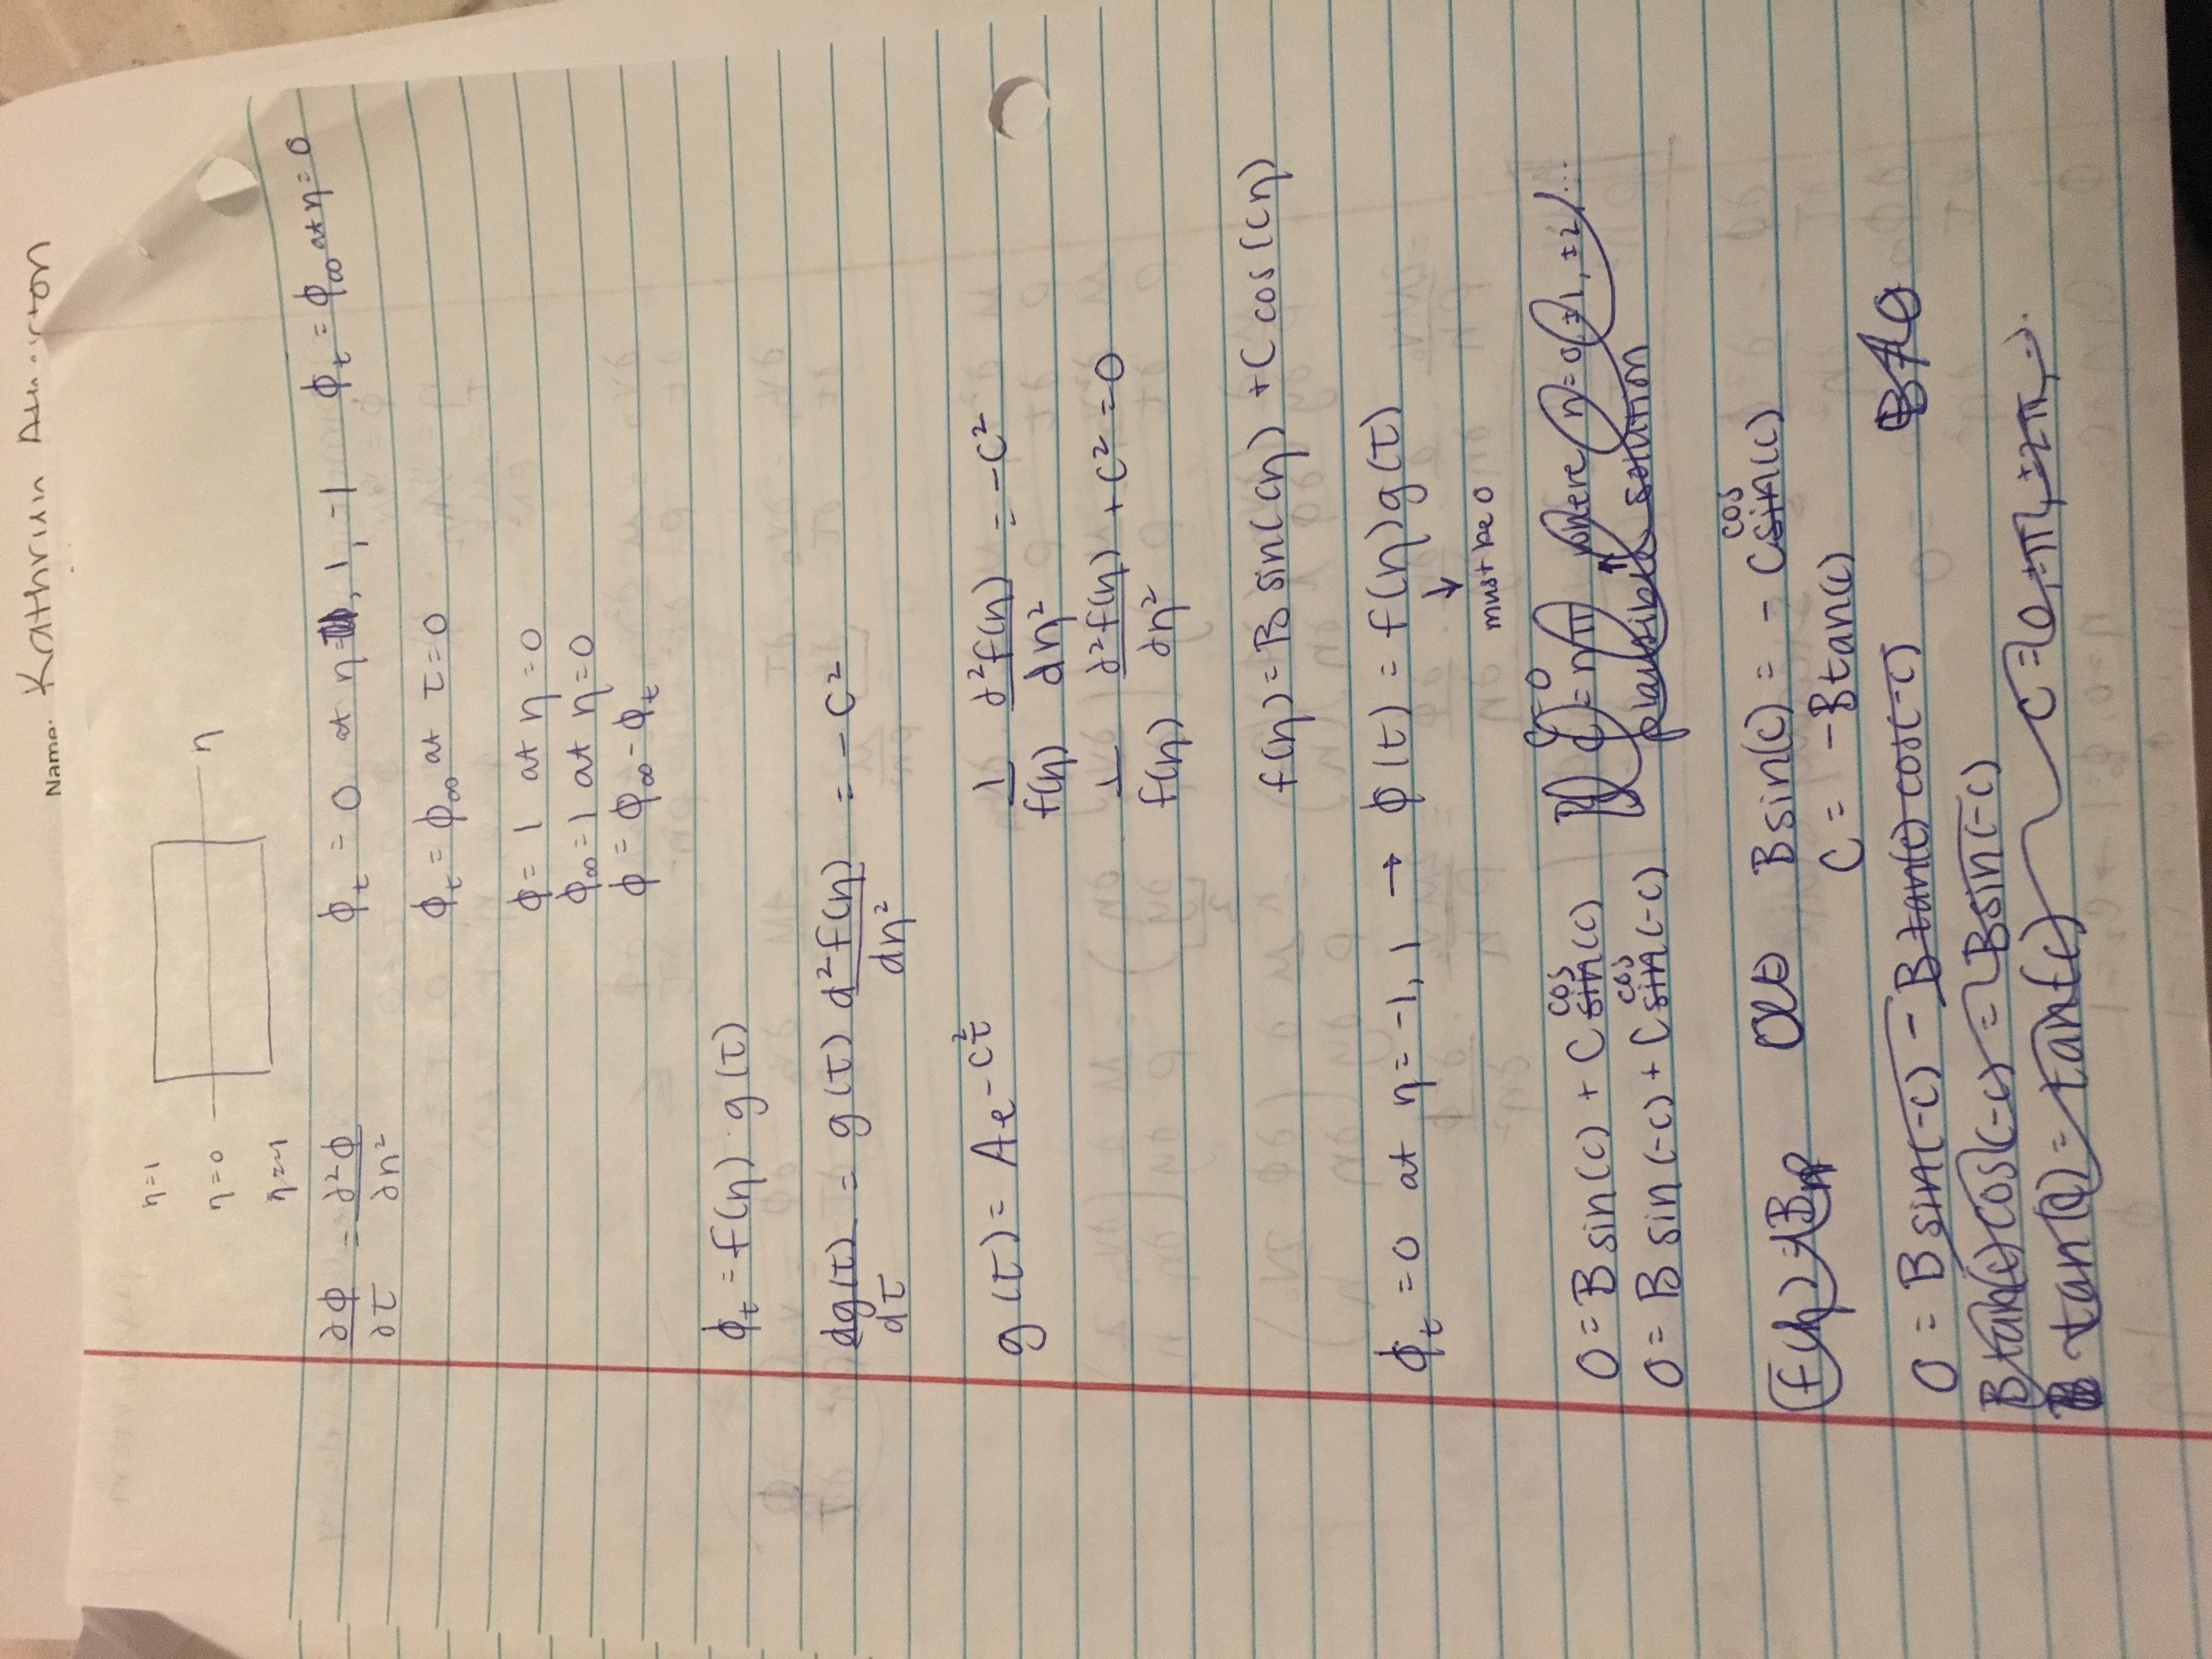 Name: Kathrun Atherton
η=1
η=0 η
η=-1
∂Φ/∂τ = ∂²Φ/∂n² ϕ_t = 0 at η= , 1, -1 ϕ_t = ϕ_∞ at η=0
ϕ_t = ϕ_∞ at τ=0
ϕ = 1 at η=0
ϕ_∞ = 1 at η=0
ϕ = ϕ_∞ - ϕ_t
ϕ_t = f(η) · g(τ)
dg(τ)/dτ = g(τ) d²f(η)/dη² = -c²
g(τ) = Ae^{-c²τ} 1/f(η) ∂²f(η)/dη² = -c²
1/f(η) ∂²f(η)/∂η² + c² = 0
f(η) = B sin(cη) + C cos(cη)
ϕ_t = 0 at η = -1, 1 → ϕ(t) = f(η)g(τ)
↓
must be 0
0 = B sin(c) + C sin cos (c) c=0 c = nπ where n=0, ±1, ±2, ...
0 = B sin(-c) + C sin cos (-c) plausible solution
f(η) = B B sin(c) = - C sin cos (c)
C = -B tan(c)
0 = B sin(-c) - B tan(c) cos(-c) B≠0
B tan(c) cos(-c) = B sin(-c)
tan(c) = tan(-c) c = 0, ±π, ±2π, ...